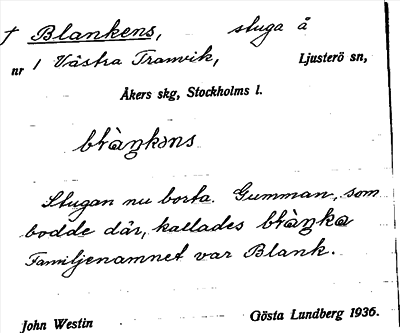 † Blankens, stuga å
nr 1 Västra Tranvik, Ljusterö sn,
Åkers skg, Stockholms l.
blàŋkəns
Stugan nu borta. Gumman, som
bodde där, kallades blàŋka
Familjenamnet var Blank.
John Westin Gösta Lundberg 1936.